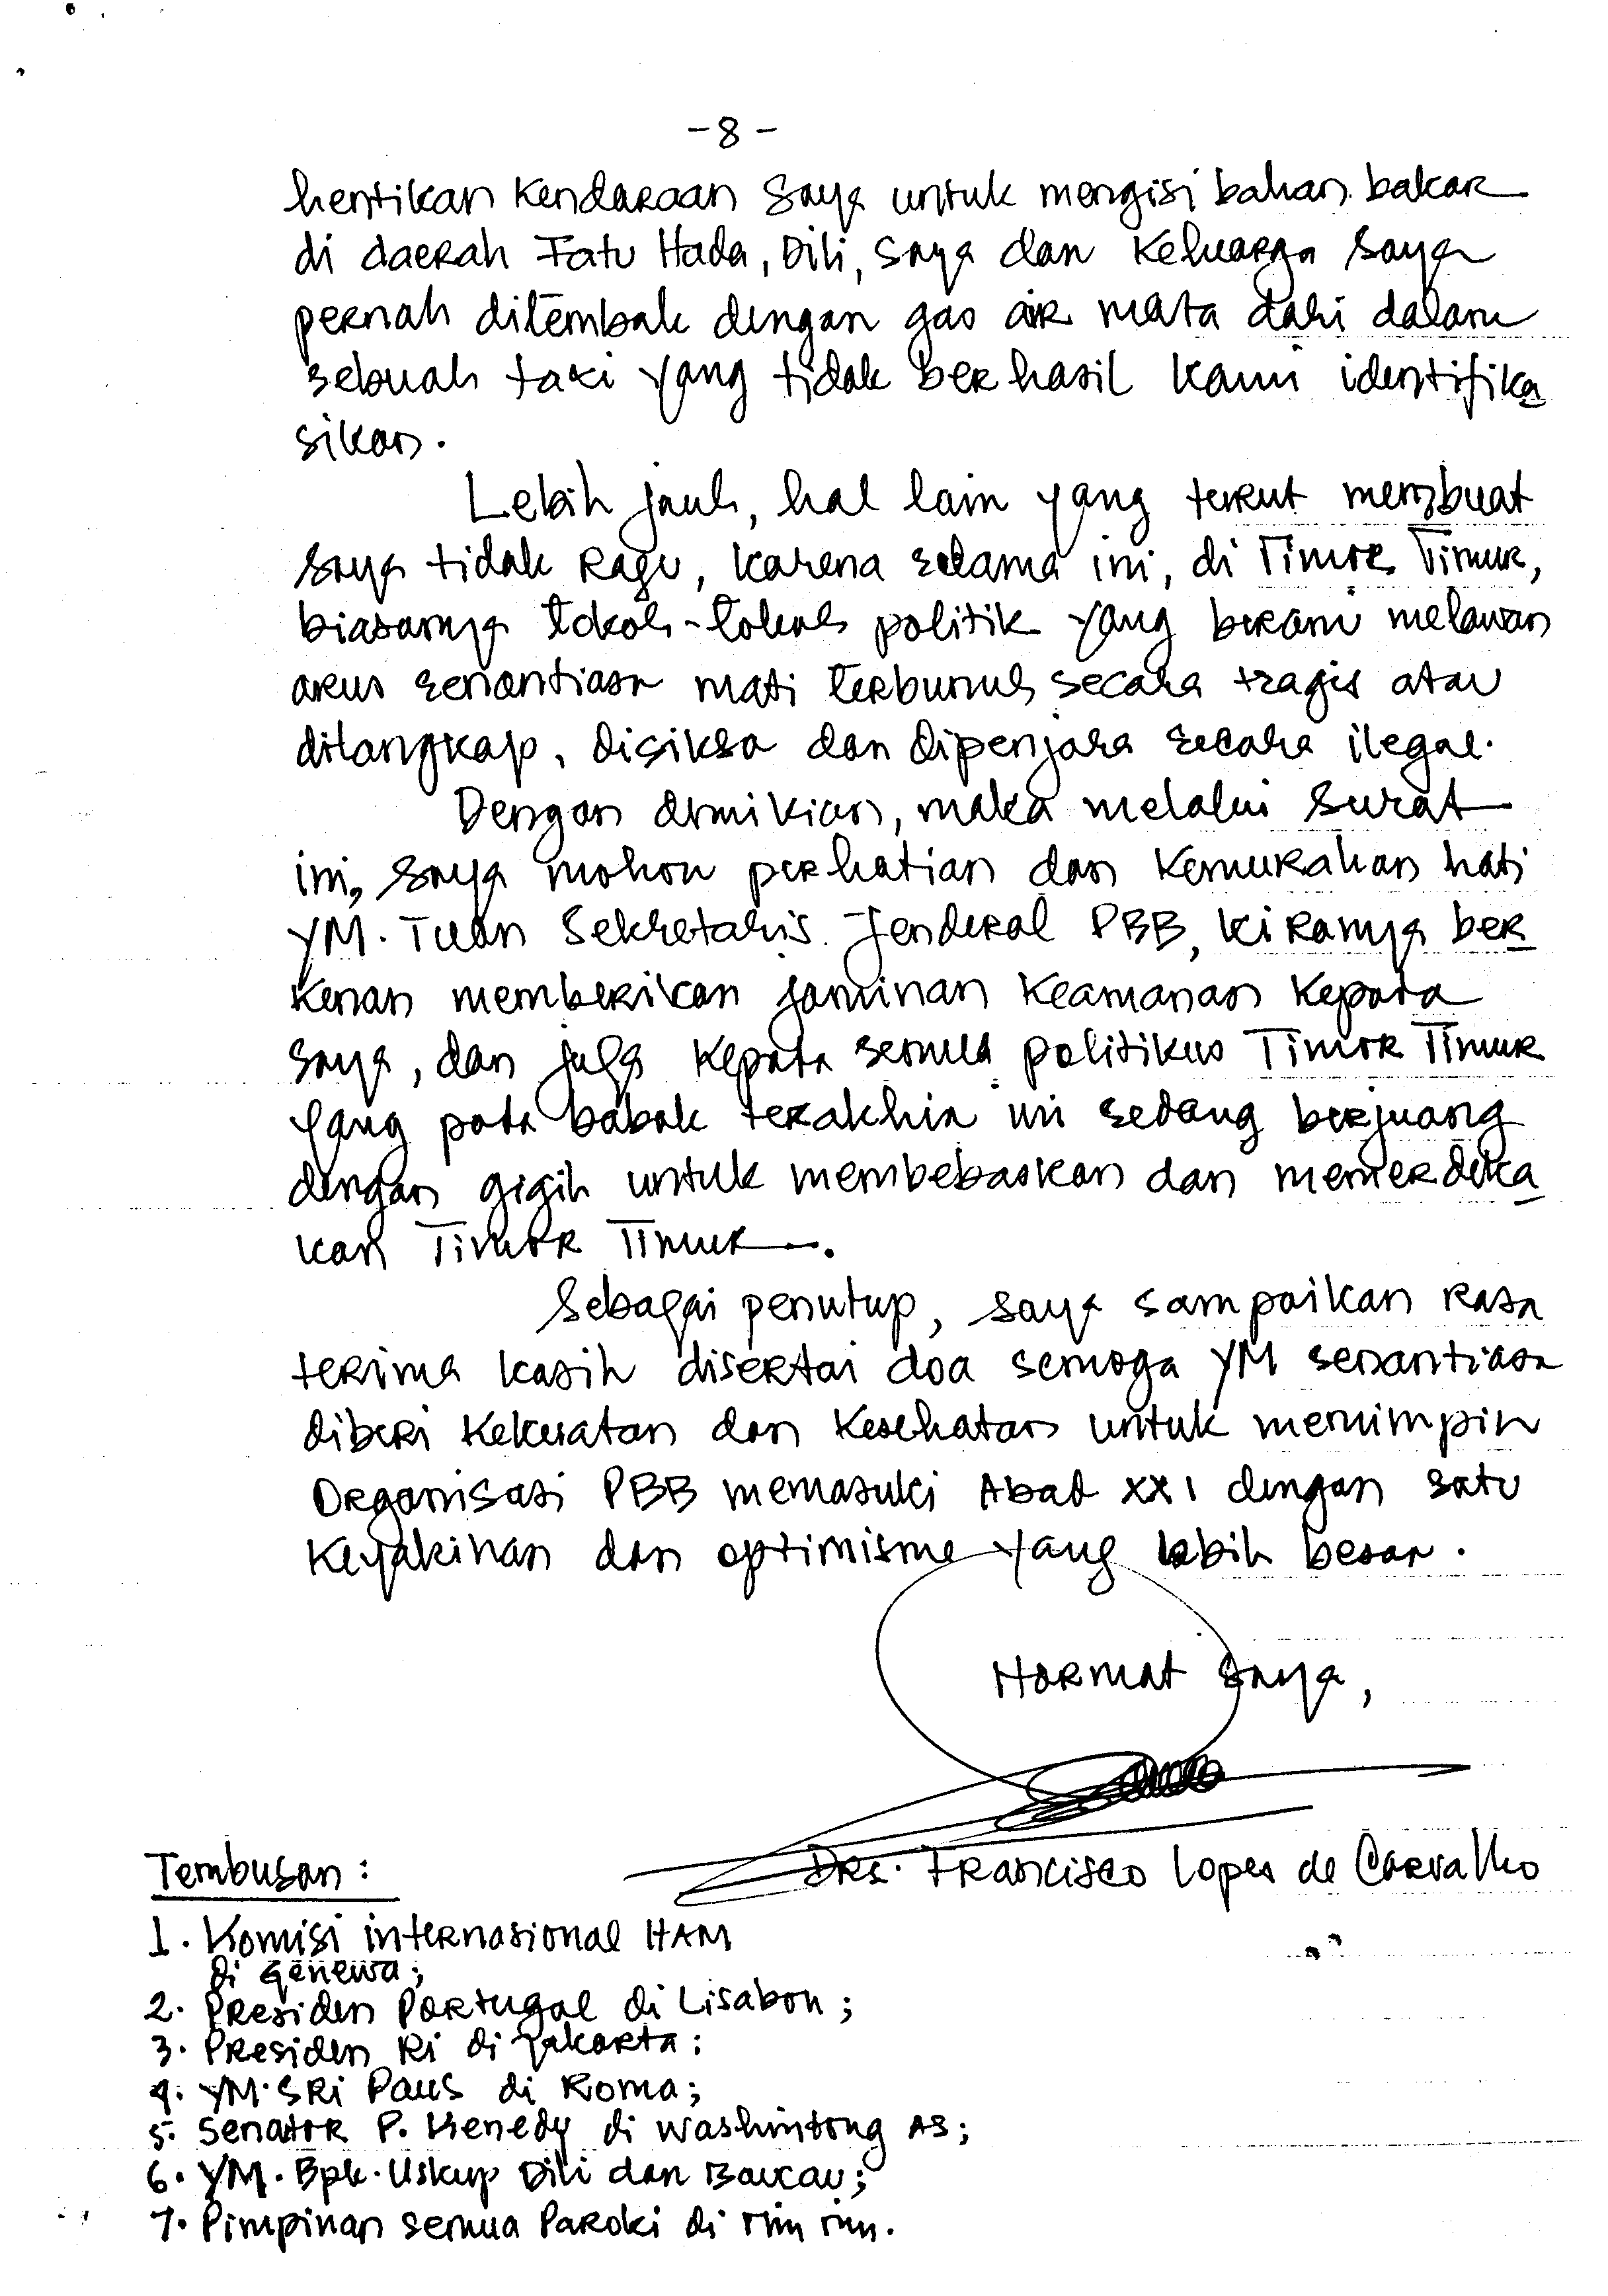 -8-
hentikan kendaraan saya untuk mengisi bahan bakar
di daerah Fatu Hada, Dili, saya dan keluarga saya
pernah ditembak dengan gas air mata dari dalam
sebuah taxi yang tidak berhasil kami identifika
sikan.
Lebih jauh, hal lain yang turut membuat
saya tidak ragu, karena selama ini, di Timor Timur,
biasanya tokoh-tokoh politik yang berani melawan
arus senantiasa mati terbunuh secara tragis atau
ditangkap, disiksa dan dipenjara secara ilegal.
Dengan demikian, maka melalui surat
ini, saya mohon perhatian dan kemurahan hati
YM. Tuan Sekretaris Jenderal PBB, kiranya ber
kenan memberikan jaminan keamanan kepada
saya, dan juga kepada semua politikus Timor Timur
yang pada babak terakhir ini sedang berjuang
dengan gigih untuk membebaskan dan memerdeka
kan Timor Timur.
Sebagai penutup, saya sampaikan rasa
terima kasih disertai doa semoga YM senantiasa
diberi kekuatan dan kesehatan untuk memimpin
Organisasi PBB memasuki Abad XXI dengan satu
keyakinan dan optimisme yang lebih besar.
Hormat saya,
Drs. Francisco Lopes de Carvalho
Tembusan :
1. Komisi internasional HAM
di Genewa;
2. Presiden Portugal di Lisabon;
3. Presiden RI di Jakarta;
4. YM. SRI Paus di Roma;
5. Senator P. Kenedy di Washintong AS;
6. YM. Bpk. Uskup Dili dan Baucau;
7. Pimpinan semua Paroki di Tim Tim.